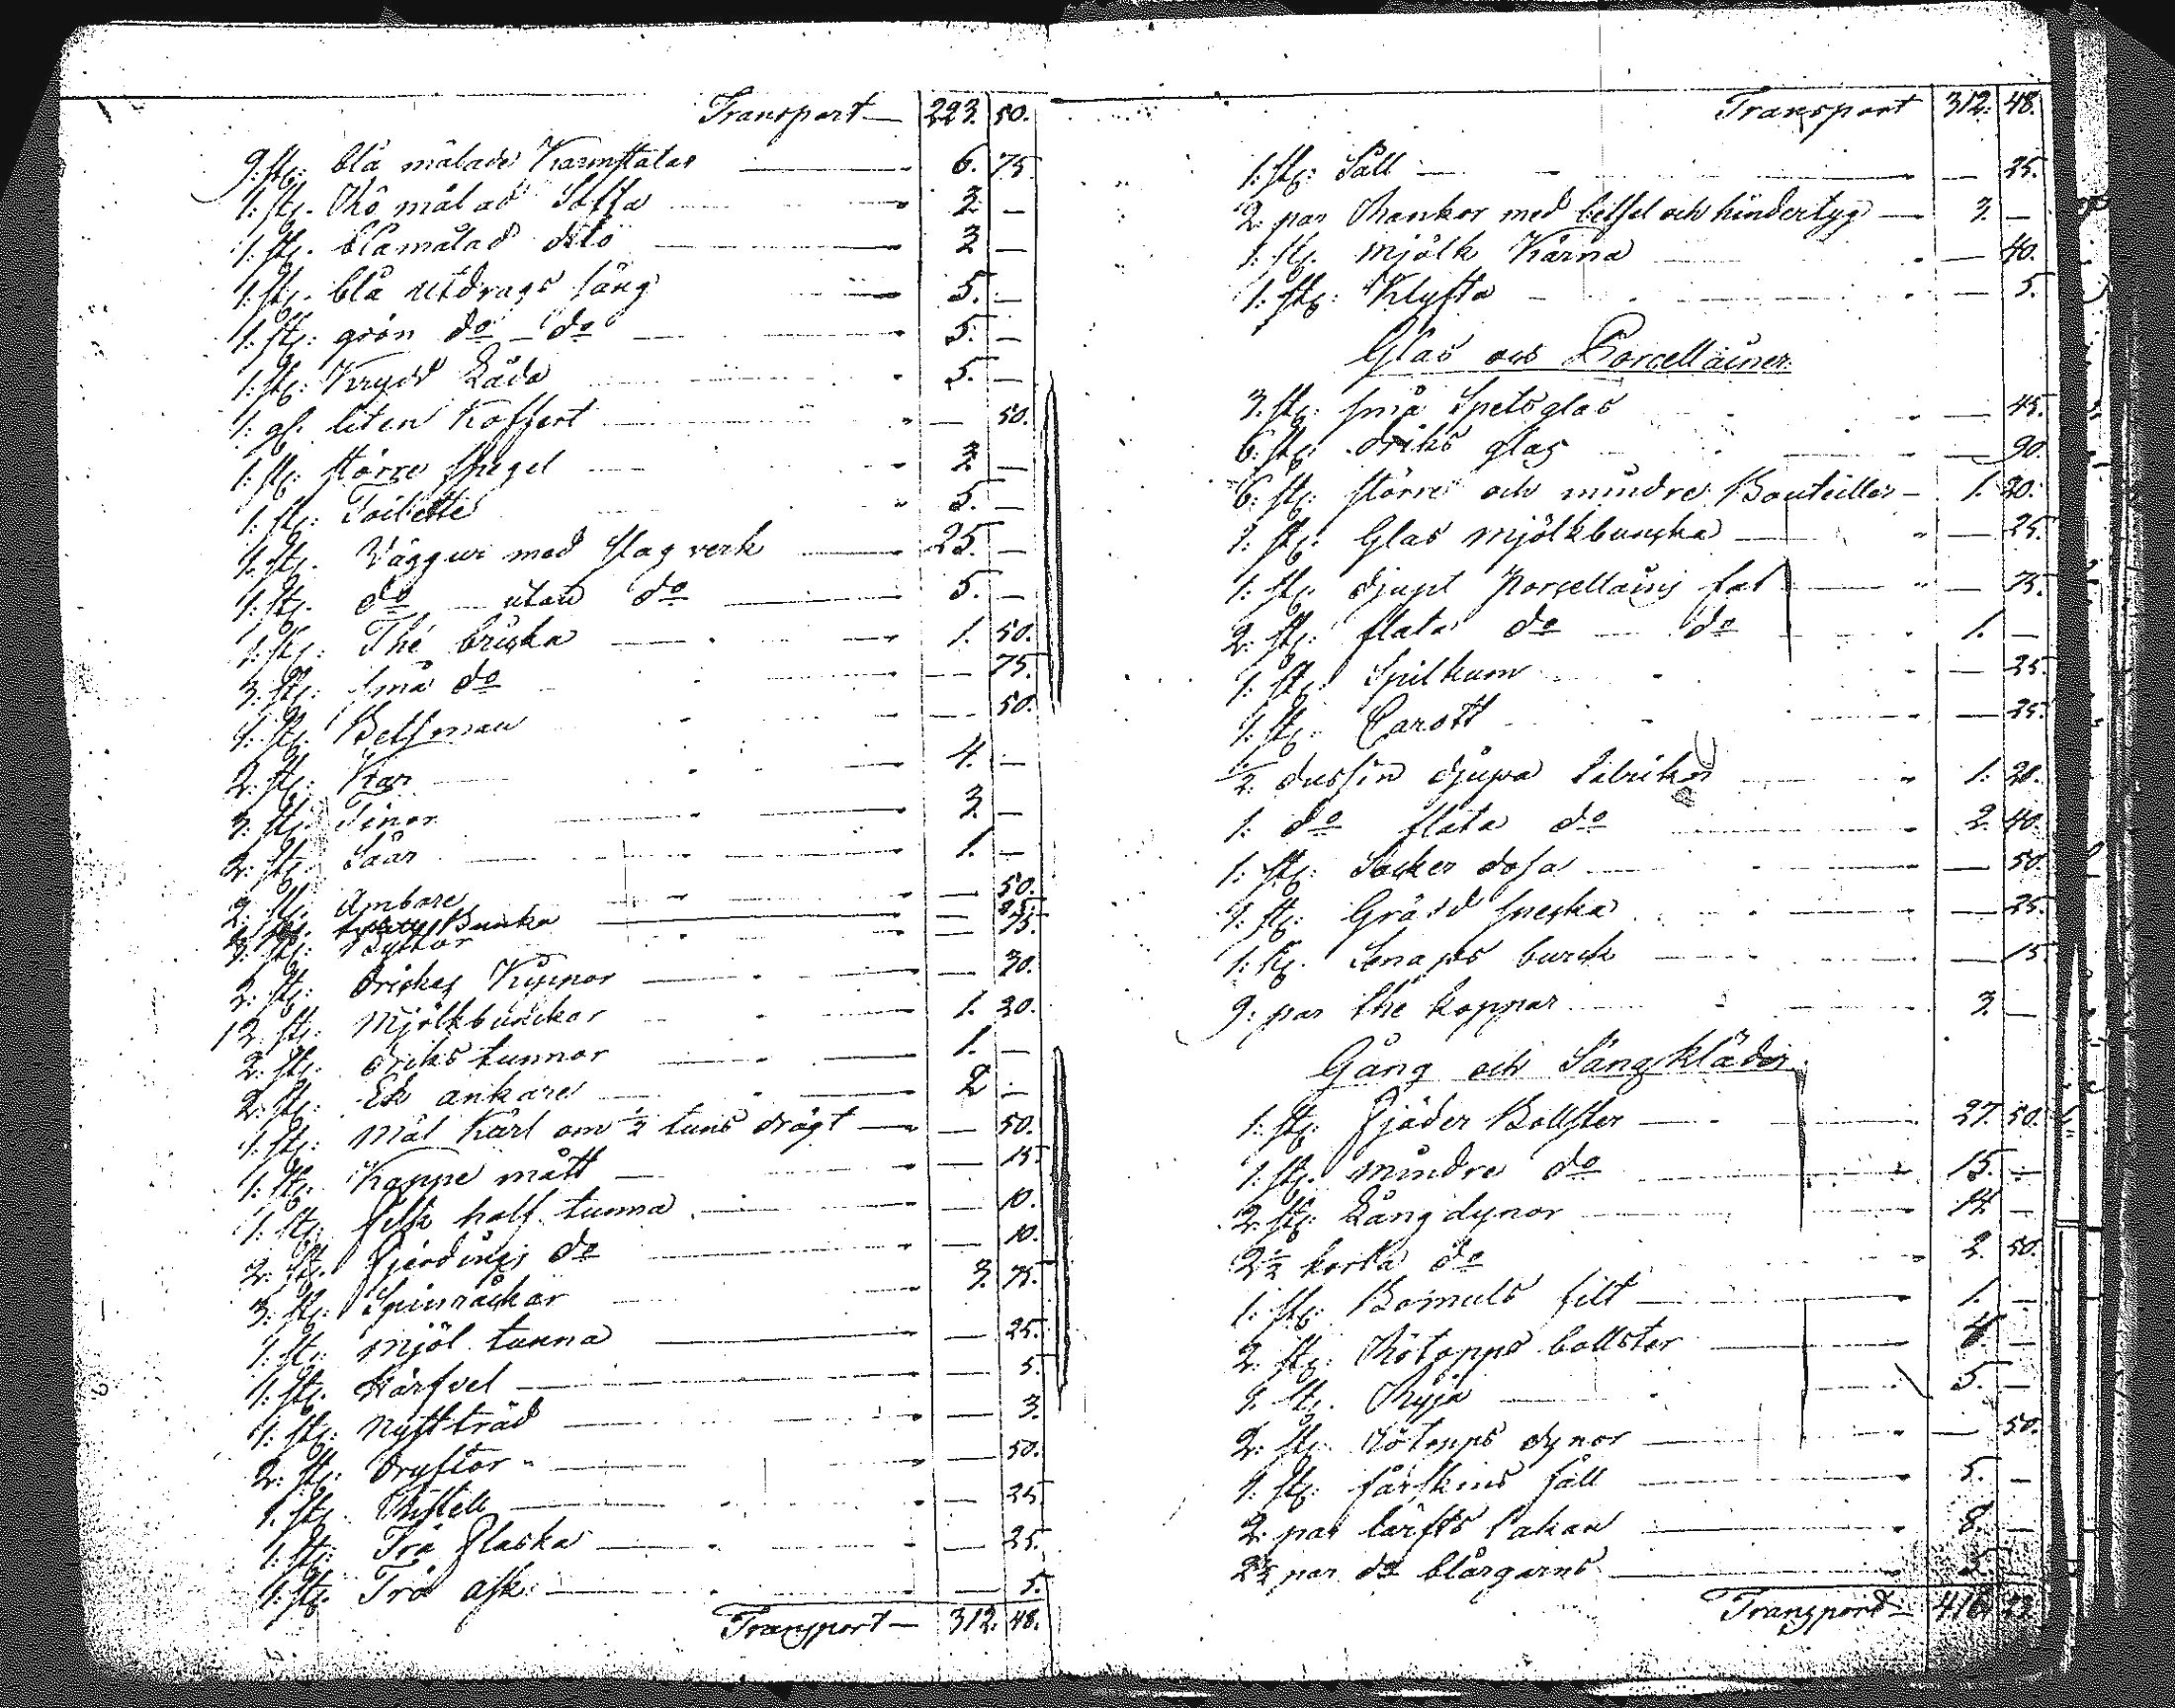 Transport — 223. 50.
9. stÿ: blå målade Karmstolar — 6. 75
1. stÿ. Rö målad Soffa — 2 —
1. stÿ. blåmålad dito — 2 —
1. stÿ. blå utdrags säng — 5. —
1. stÿ: grön do do — 5. —
1. stÿ: Krydd Låda — 5. —
1. st. liten Koffert — 50.
1. stÿ: större spegel — 2 —
1. stÿ: Toilette — 5. —
1. stÿ. Väggur med slag verk — 25. —
1. stÿ. do utan do — 5. —
1. stÿ: Thé bricka — 1. 50.
3. stÿ: små do — 75.
1. stÿ. Betsman — 50.
2. stÿ: Kar — 4. —
3. stÿ. Tinor — 3. —
2. stÿ. Såar — 1. —
2. st. Ämbare — 50.
Bunka — 25.
3. stÿ: Byttor — 75.
2. stÿ: drickes Kannor — 30.
12. stÿ: Mjölkbunckor — 1. 20.
2. stÿ. driks tunnor — 1. —
2. stÿ. Ek ankare — 2 —
1. stÿ: Mål Kärl om ½ tuns drägt — 50.
1. stÿ. Kappe mått — 15
1. stÿ: fisk half tunna — 10.
2. stÿ. fjerdings do — 10.
3. stÿ: Spinråckar — 3. 75.
1. st: Mjöl tunna — 25.
1. stÿ. Kärfvel — 5
1. stÿ: Nystträd — 3.
2. stÿ: Dryftor — 50.
1. stÿ. Rissel — 25
1. stÿ: Trä flaska — 25.
1. stÿ. Trä ask — 5
Transport — 312. 48.
Transport 312. 48.
1. stÿ: Såll — 25.
2. par Rankor med betsel och hindertyg — 3. —
1. stÿ. Mjölk Kärna — 40.
1. stÿ: Klyfta — 5.
Glas och Porcellainer
3. stÿ: små Spetsglas — 45.
6. stÿ: driks glas — 90
6. stÿ: större och mindre Bouteiller — 1. 20.
1. stÿ: Glas mjölkbuncka — 25.
1. stÿ. djupt Porcellains fat — 75.
2. stÿ. flata do do — 1. —
1. stÿ. Spilkum — 25
1. stÿ. Carott — 25.
½ dussin djupa talrikar — 1. 20.
1. do flata do — 2. 40.
1. stÿ. Socker dosa — 50
1. stÿ: Grädd snecka — 25.
1. stÿ. Senaps burck — 15
9. par thé koppar — 3. —
Gång och Sängkläder
1. stÿ: Fjäder Bollster — 27. 50.
1. stÿ. Mindre do — 15. —
2. stÿ: Långdynor — 12 —
2½ korta do — 2. 50.
1. stÿ: Bomuls filt — 1. —
2. stÿ. Rötopps bollster — 4. —
1. st. Ryja — 5. —
2. stÿ. Rötopps dynor — 50.
1. stÿ: fårskins fäll — 5. —
2. par lärfts lakan — 8. —
2½ par do blårgarns — 5 —
Transport — 416.